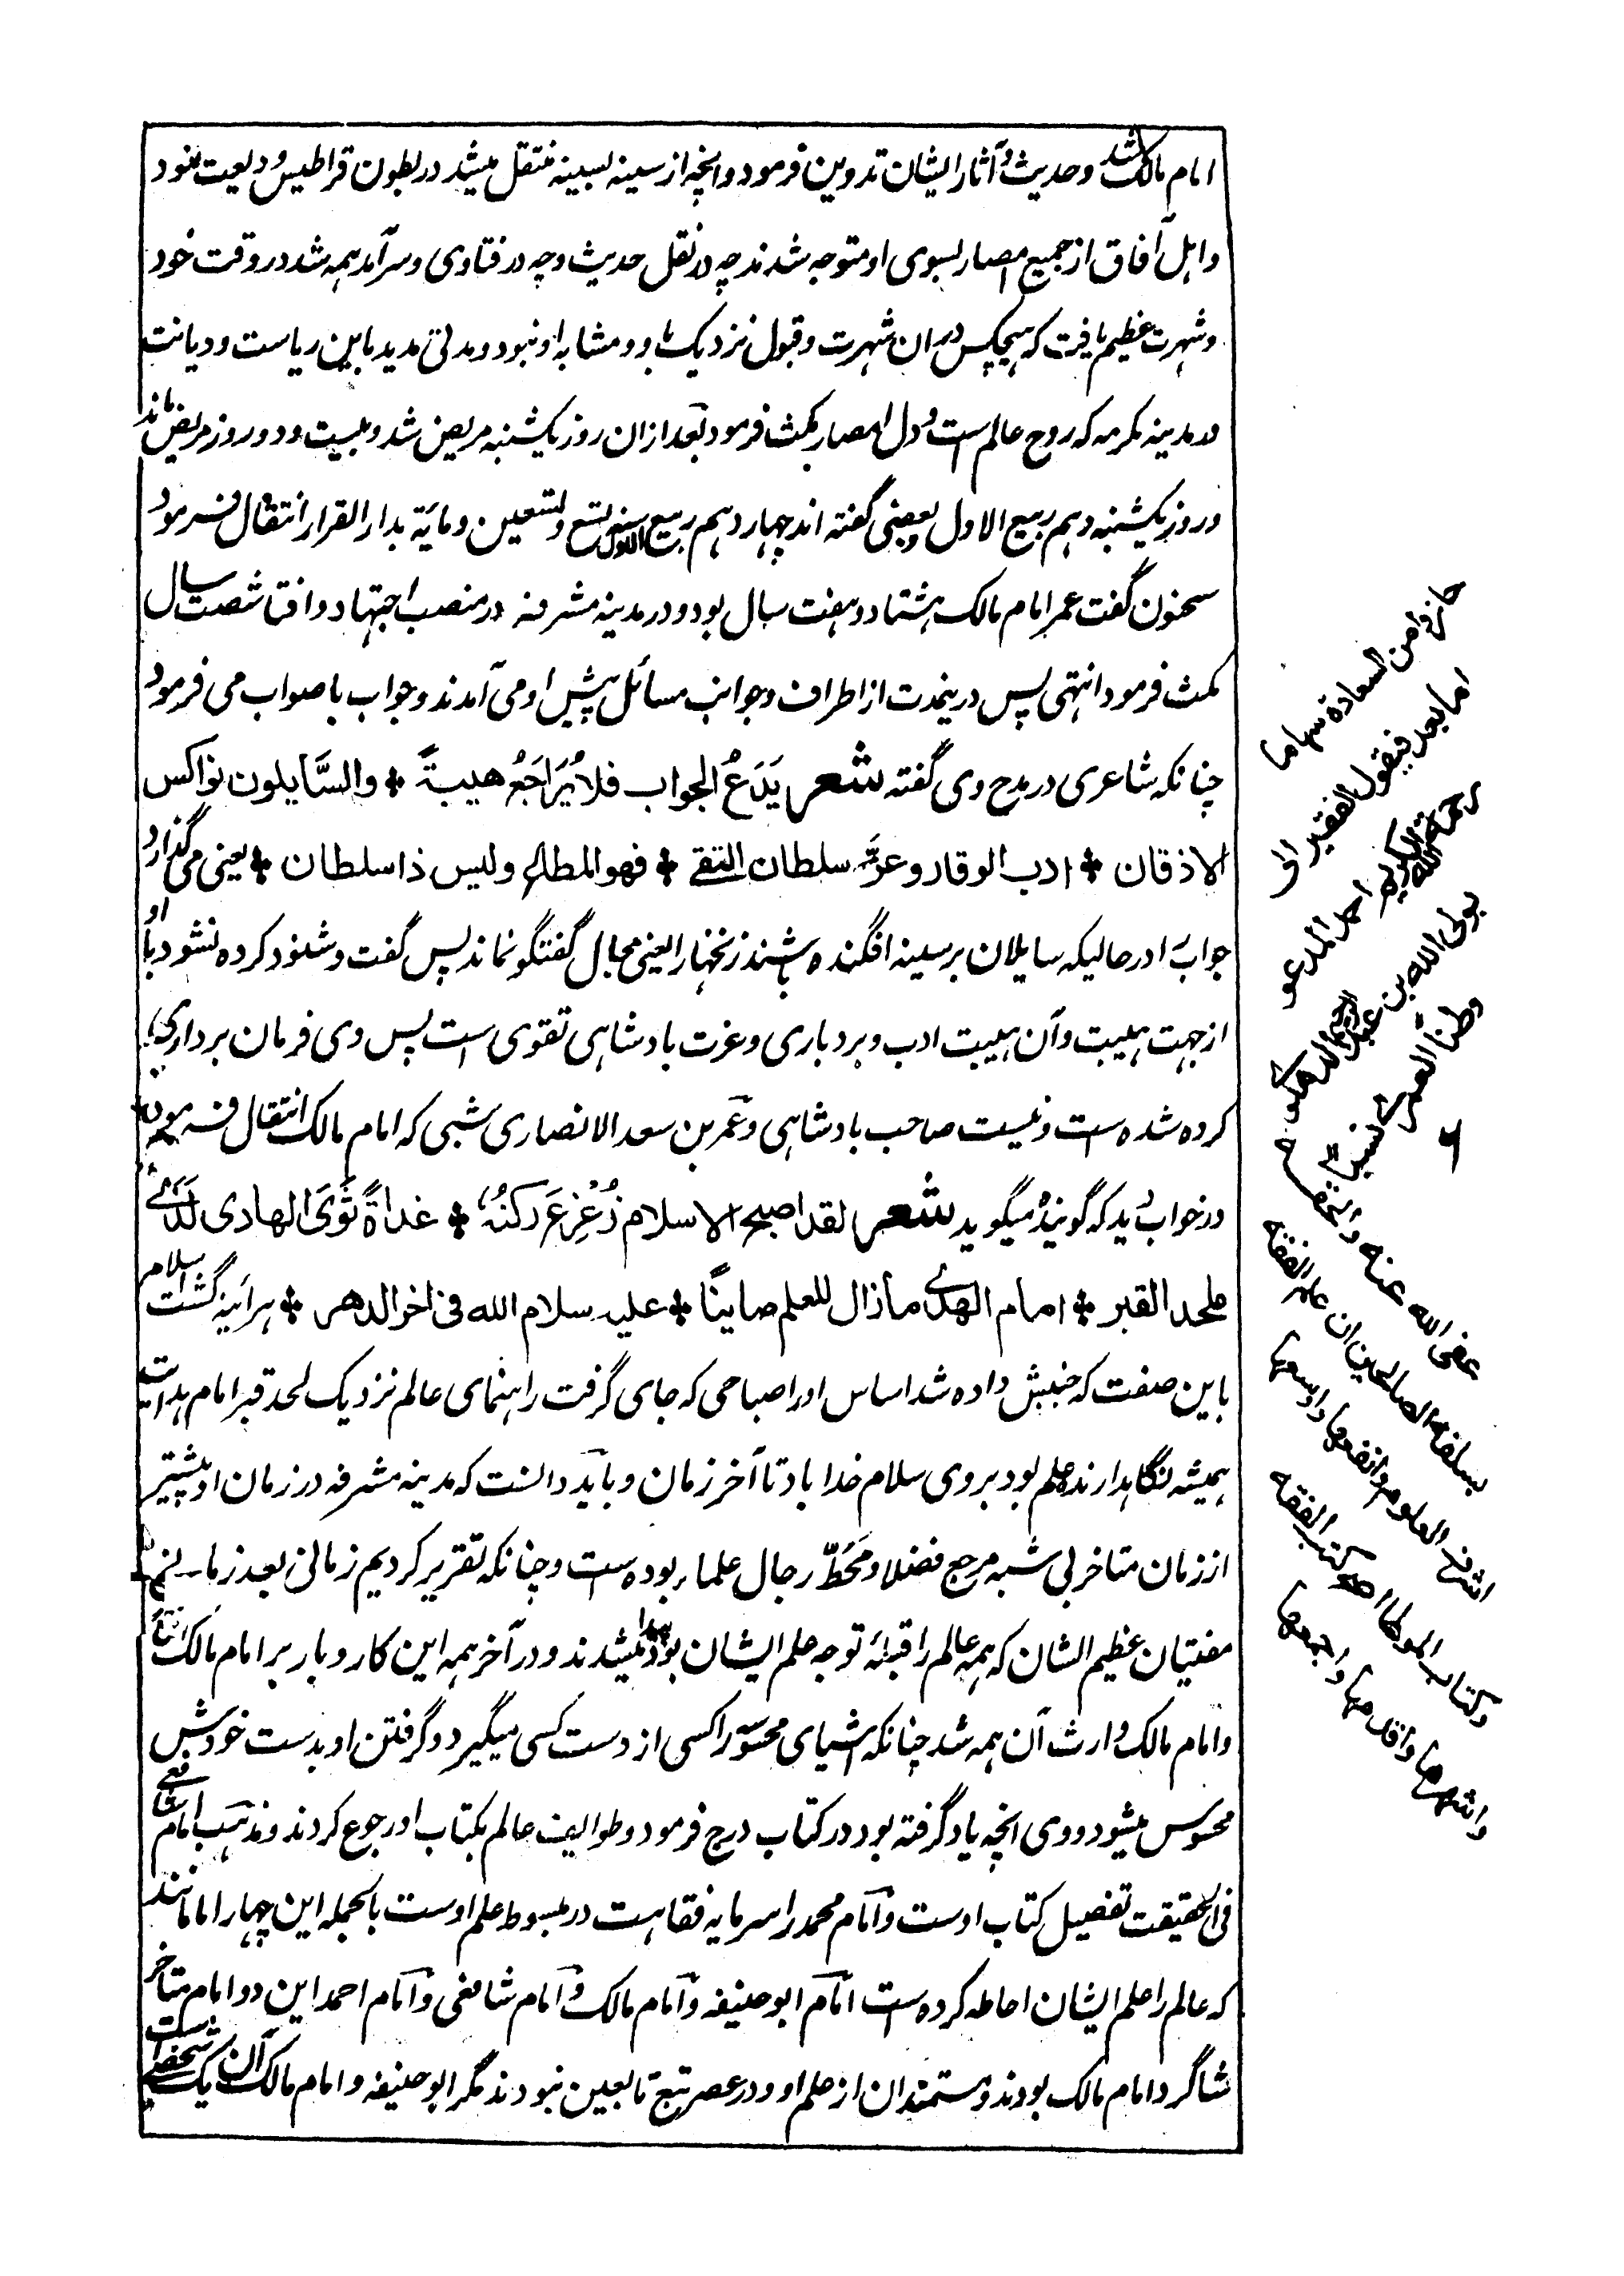 امام مالک شد و حدیث و آثار ایشان تدوین فرمود و انچه از سینه بسینه منتقل میشد در بطون قراطیس ودیعت نمود
و اہل آفاق از جمیع امصار بسوی او متوجه شدند چه در نقل حدیث و چه در فتاوی و سرآمد ہمه شد در وقت خود
و شہرت عظیم یافت که ہیچکس در ان شہرت و قبول نزدیک باو و مشابه او نبود و مدتی مدید باین ریاست و دیانت
در مدینه مکرمه که روح عالم ست و دل امصار مکث فرمود بعد ازان روز یکشنبه مریض شد و بیست و دو روز مریض ماند
و روز یکشنبه دہم ربیع الاول و بعضی گفته اند چہاردہم ربیع الاول سنه تسع و تسعین و مایة بدار القرار انتقال فرمود
سحنون گفت عمر امام مالک ہشتاد و ہفت سال بود و در مدینه مشرفه در منصب اجتہاد و افتا شصت سال
مکث فرمود انتہی پس درینمدت از اطراف و جوانب مسائل پیش او می آمدند و جواب باصواب می فرمود
چنانکه شاعری در مدح وی گفته شعر یَدَعُ الجواب فلا یُرَاجَعُ هیبةً ٭ والسَّایلون نواکس
الاذقان ٭ ادب الوقار وعزّ سلطان التقے ٭ فهو المطاع ولیس ذا سلطان ٭ یعنی می گذارد
جواب را در حالیکه سایلان بر سینه افگنده باشند زنخہا را یعنی مجال گفتگو نماند پس گفت و شنود کرده نشود با او
از جہت ہیبت و آن ہیبت ادب و بردباری و عزت بادشاہی تقوی است پس وی فرمان برداری
کرده شده ست و نیست صاحب بادشاہی و عمر بن سعد الانصاری شبی که امام مالک انتقال فرمود
در خواب دید که گوینده میگوید شعر لقد اصبح الاسلام زُعْزِعَ رکنُه ٭ غداةً ثَوَی الهادی لَدَے
ملحد القبر ٭ امام الهدی مازال للعلم صاینًا ٭ علیه سلام الله فی اخر الدهر ٭ ہرآینه گشت اسلام
باین صفت که جنبش داده شد اساس او را صباحی که جای گرفت راہنمای عالم نزدیک لحد قبر امام ہدایت
ہمیشه نگاہدارنده علم بود بروی سلام خدا باد تا آخر زمان و باید دانست که مدینه مشرفه در زمان او پیشتر
از زمان متاخر بی شبه مرجع فضلا و مَحَطّ رجال علماء بوده ست و چنانکه تقریر کردیم زمانی بعد زمانے
مفتیان عظیم الشان که ہمه عالم را قبله توجه علم ایشان بود پیدا میشدند و در آخر ہمه این کار و بار بر امام مالک
و امام مالک وارث آن ہمه شد چنانکه اشیای محسوسه را کسی از دست کسی میگیرد و گرفتن او بدست خودش
محسوس میشود و وی انچه یاد گرفته بود در کتاب درج فرمود و طوایف عالم بکتاب او رجوع کردند و مذہب امام شافعے
فی الحقیقت تفصیل کتاب اوست و امام محمد را سرمایه فقاہت در مبسوط علم اوست بالجمله این چہار امامانند
که عالم را علم ایشان احاطه کرده ست امام ابو حنیفه و امام مالک و امام شافعی و امام احمد این دو امام متاخر
شاگرد امام مالک بودند و مستمندان از علم او و در عصر تبع تابعین نبودند مگر ابو حنیفه و امام مالک آن یک شخصے است
حازوا من السعادة سهاما
اما بعد فیقول الفقیر الی
رحمة الله الکریم احمد المدعو
بولی الله بن عبد الرحیم الدهلوی
وطنا العمری نسبا
عفی الله عنه والحقه
بسلفه الصالحین ان علم الفقه
اشرف العلوم وانفعها واوسعها
وکتاب الموطا اصح کتب الفقه
واشهرها واقدمها واجمعها